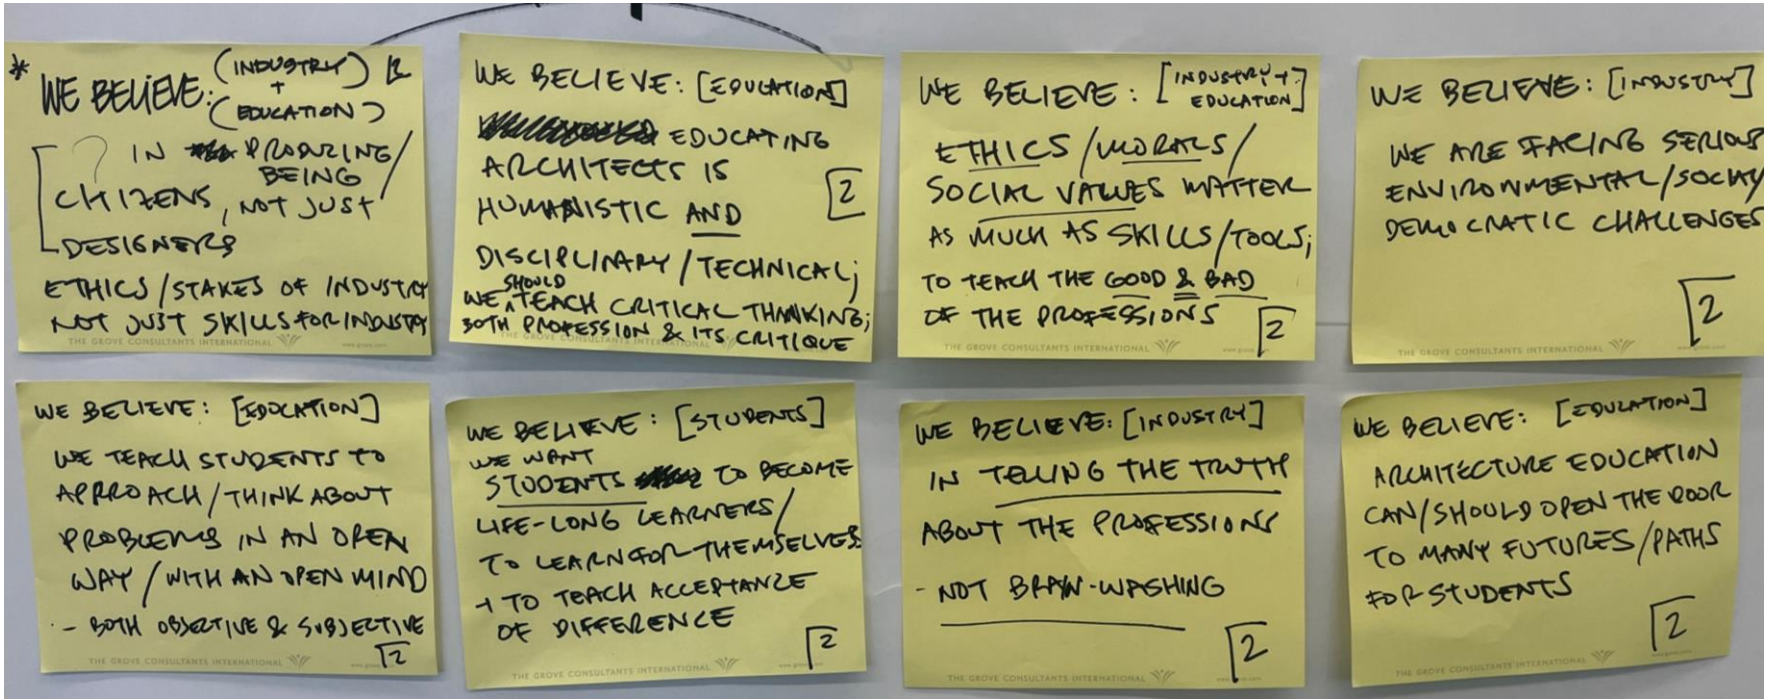 * WE BELIEVE: (INDUSTRY) 2
+
(EDUCATION)
? IN PRODUCING/
BEING
CITIZENS, NOT JUST
DESIGNERS
ETHICS/STAKES OF INDUSTRY
NOT JUST SKILLS FOR INDUSTRY
THE GROVE CONSULTANTS INTERNATIONAL www.grove.com
WE BELIEVE: [EDUCATION]
EDUCATING
ARCHITECTS IS
HUMANISTIC AND
2
DISCIPLINARY/TECHNICAL;
SHOULD
WE ^ TEACH CRITICAL THINKING;
BOTH PROFESSION & ITS CRITIQUE
THE GROVE CONSULTANTS INTERNATIONAL
WE BELIEVE: [INDUSTRY +
EDUCATION]
ETHICS/MORALS/
SOCIAL VALUES MATTER
AS MUCH AS SKILLS/TOOLS;
TO TEACH THE GOOD & BAD
OF THE PROFESSIONS
2
THE GROVE CONSULTANTS INTERNATIONAL www.grove.com
WE BELIEVE: [INDUSTRY]
WE ARE FACING SERIOUS
ENVIRONMENTAL/
DEMOCRATIC CHALLENGES
2
THE GROVE CONSULTANTS INTERNATIONAL www.grove.com
WE BELIEVE: [EDUCATION]
WE TEACH STUDENTS TO
APPROACH/THINK ABOUT
PROBLEMS IN AN OPEN
WAY/WITH AN OPEN MIND
- BOTH OBJECTIVE & SUBJECTIVE
2
THE GROVE CONSULTANTS INTERNATIONAL
WE BELIEVE: [STUDENTS]
WE WANT
STUDENTS TO BECOME
LIFE-LONG LEARNERS/
TO LEARN FOR THEMSELVES
+ TO TEACH ACCEPTANCE
OF DIFFERENCE
2
THE GROVE CONSULTANTS INTERNATIONAL www.grove.com
WE BELIEVE: [INDUSTRY]
IN TELLING THE TRUTH
ABOUT THE PROFESSIONS
- NOT BRAIN-WASHING
2
THE GROVE CONSULTANTS INTERNATIONAL www.grove.com
WE BELIEVE: [EDUCATION]
ARCHITECTURE EDUCATION
CAN/SHOULD OPEN THE DOOR
TO MANY FUTURES/PATHS
FOR STUDENTS
2
THE GROVE CONSULTANTS INTERNATIONAL www.grove.com